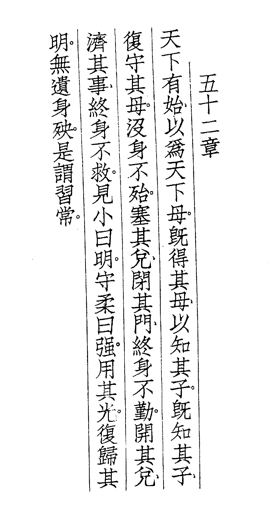 五十二章
天下有始、以爲天下母。旣得其母、以知其子。旣知其子、
復守其母。沒身不殆。塞其兌、閉其門、終身不勤。開其兌、
濟其事、終身不救。見小曰明。守柔曰强。用其光、復歸其
明。無遺身殃。是謂習常。